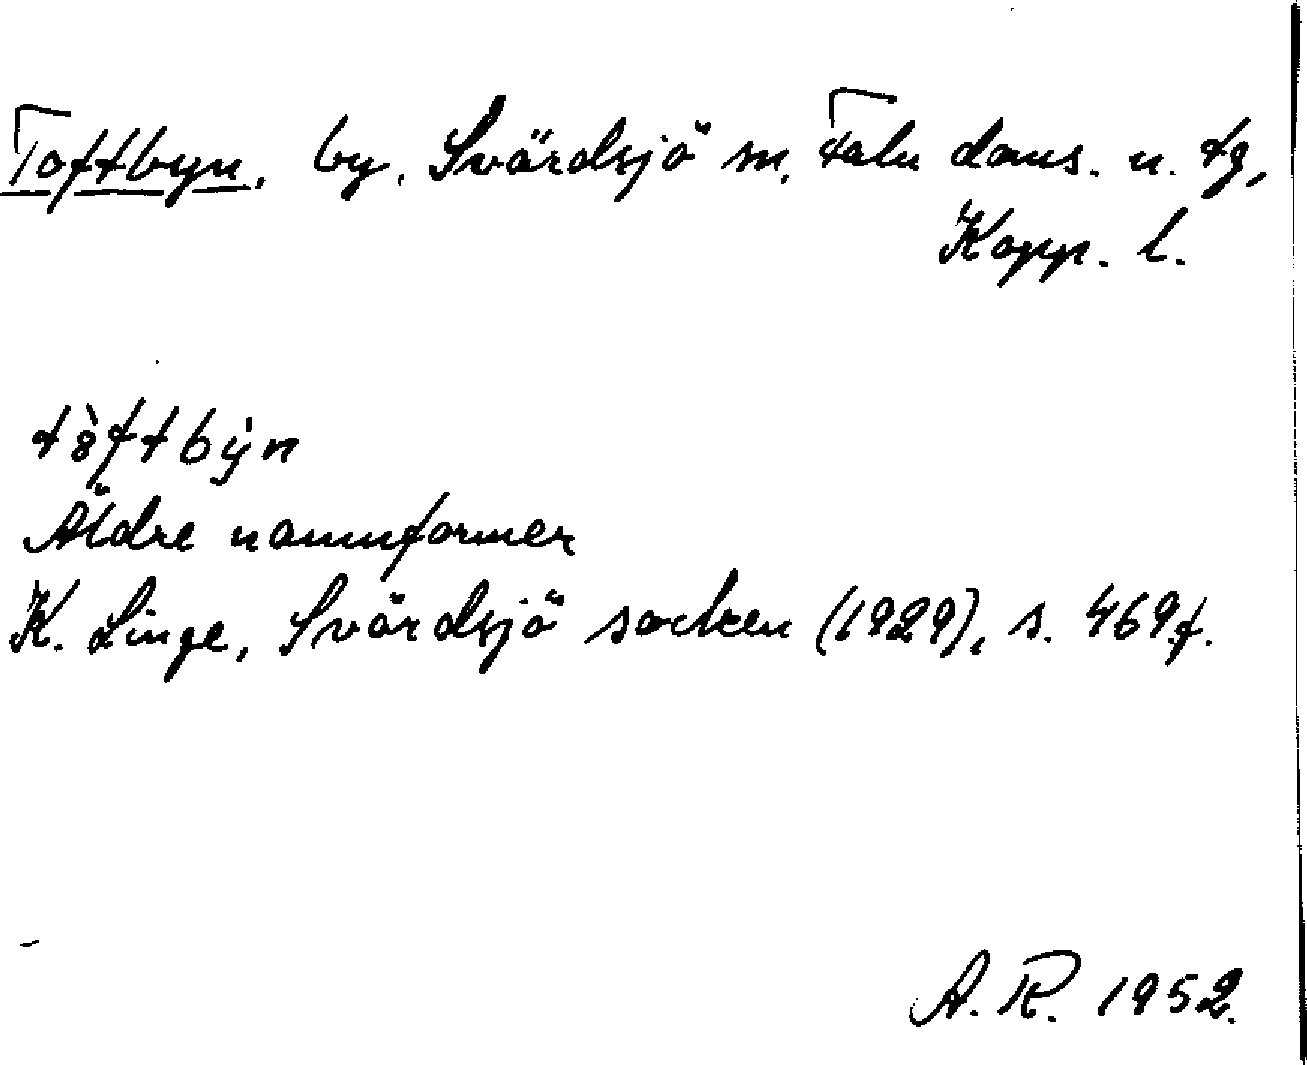 Toftbyn, by, Svärdsjö sn, Falu doms. n. tg,
Kopp. l.
tòftbýn
Äldre namnformer
K. Linge, Svärdsjö socken (1929), s. 469.f.
A. R. 1952.